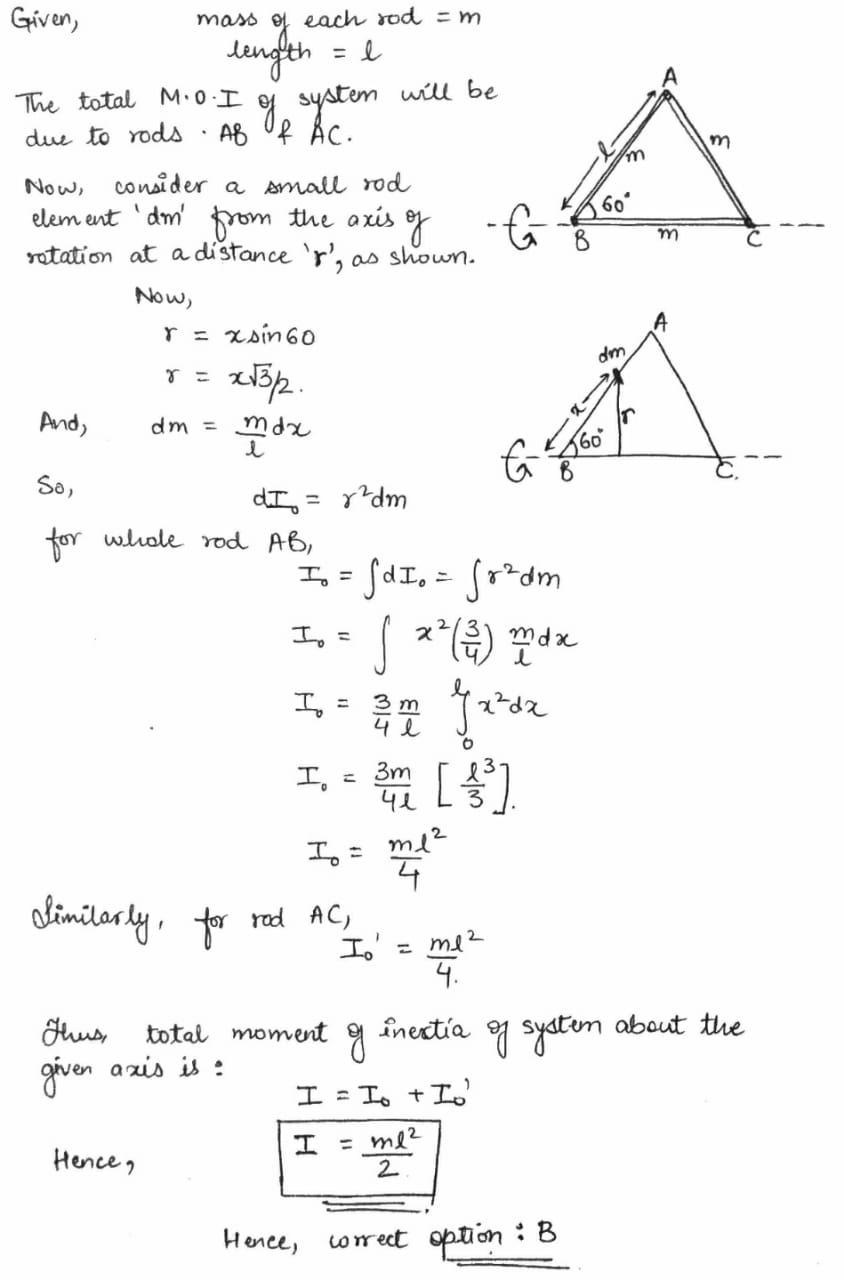 Given, mass of each rod = m
length = l
The total M.O.I of system will be
due to rods . AB & AC.
A
l
m
m
60°
B
m
C
Now, consider a small rod
element 'dm' from the axis of
rotation at a distance 'r', as shown.
Now,
r = x sin60
r = x√3/2.
And, dm = m/l dx
A
dm
x
r
60°
B
C.
So, dI₀ = r²dm
for whole rod AB,
I₀ = ∫dI₀ = ∫r²dm
I₀ = ∫ x²(3/4) m/l dx
I₀ = 3/4 m/l ∫₀ˡ x²dx
I₀ = 3m/4l [l³/3].
I₀ = ml²/4
Similarly, for rod AC,
I₀' = ml²/4.
Thus, total moment of inertia of system about the
given axis is :
I = I₀ + I₀'
Hence, I = ml²/2
Hence, correct option : B